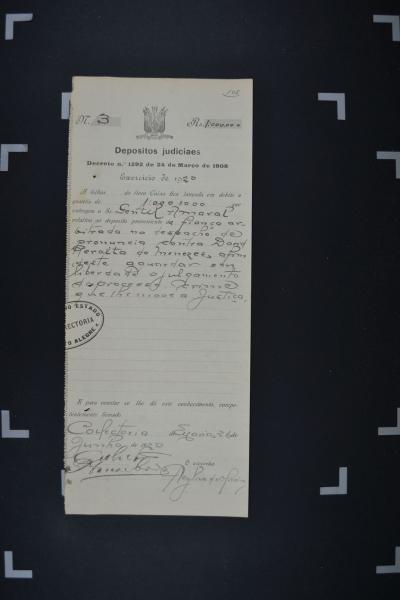 108
N. 3 Rs. 1.000.000
Depositos judiciaes
Decreto n.º 1292 de 24 de Março de 1908
Exercicio de 1920
A folhas do livro Caixa fica lançada em debito a
quantia de 1.000.000 que
entregou o Sr. Gentil Amaral
relativa ao deposito proveniente de fiança ar-
bitrada no despacho de
pronuncia contra
Peralta de Menezes, afim
deste aguardar em
liberdade o julgamento
do processo crime
que lhe move a Justiça.
DO ESTADO
DIRECTORIA
PORTO ALEGRE
E para constar se lhe dá este conhecimento, compe-
tentemente firmado.
Collectoria 26 de
Junho 1920
O escrivão